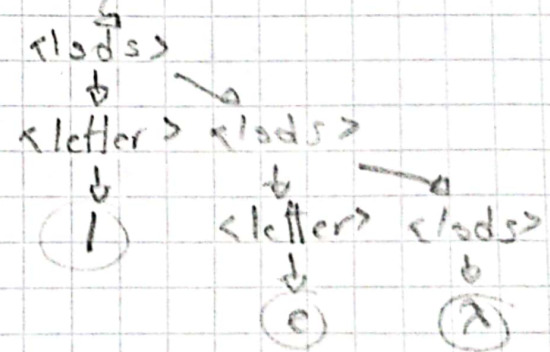 <lods>
<letter> <lods>
l <letter> <lods>
e λ